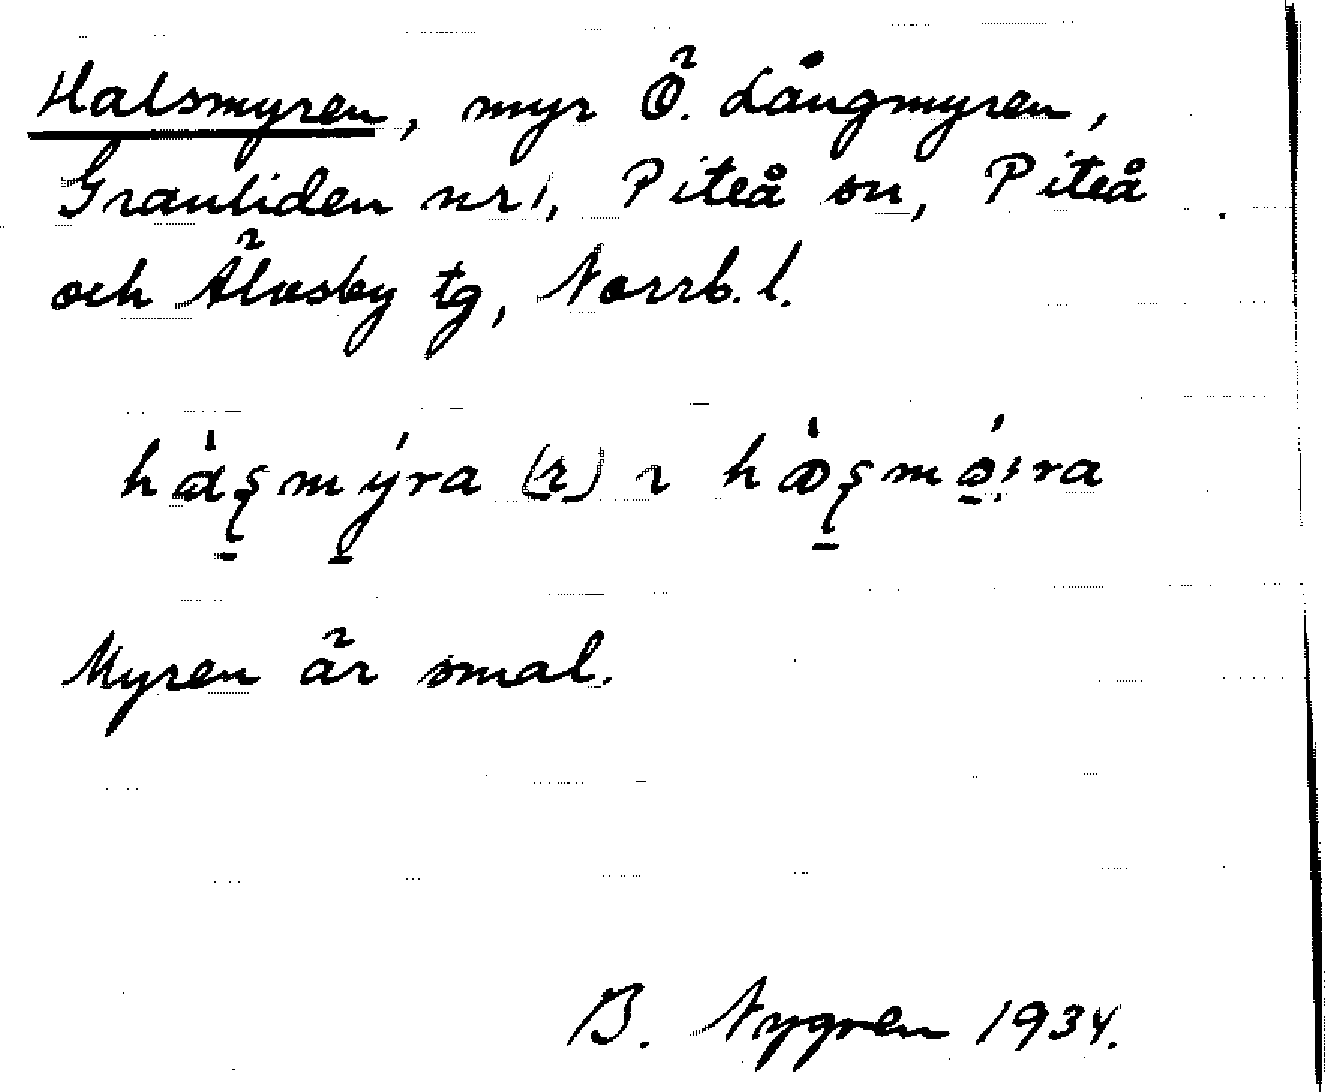 Halsmyren, myr Ö. Långmyren,
Granliden nr 1, Piteå sn, Piteå
och Älvsby tg, Norrb. l.
Myren är smal.
B. Nygren 1934.